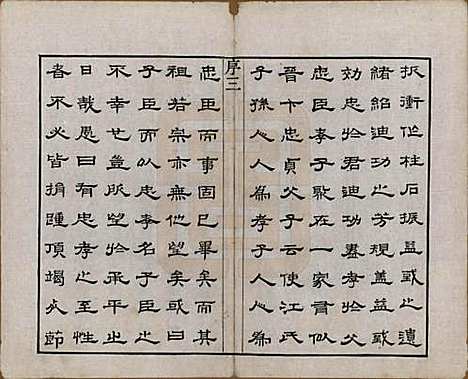 扼衝作柱石振益或之遺
緒紹迪功之芳規盖益或
効忠於君迪功盡孝於父
忠臣孝子聚在一家謂似
晋卞忠貞父子云使江氏
子孫人人為孝子人人為
序三
忠臣而事固已畢矣而其
祖若宗亦無他望矣或曰
子臣而以忠孝名子臣之
不幸也盖所望於承平之
日哉愚曰有忠孝之至性
者不必皆捐踵頂竭夫節